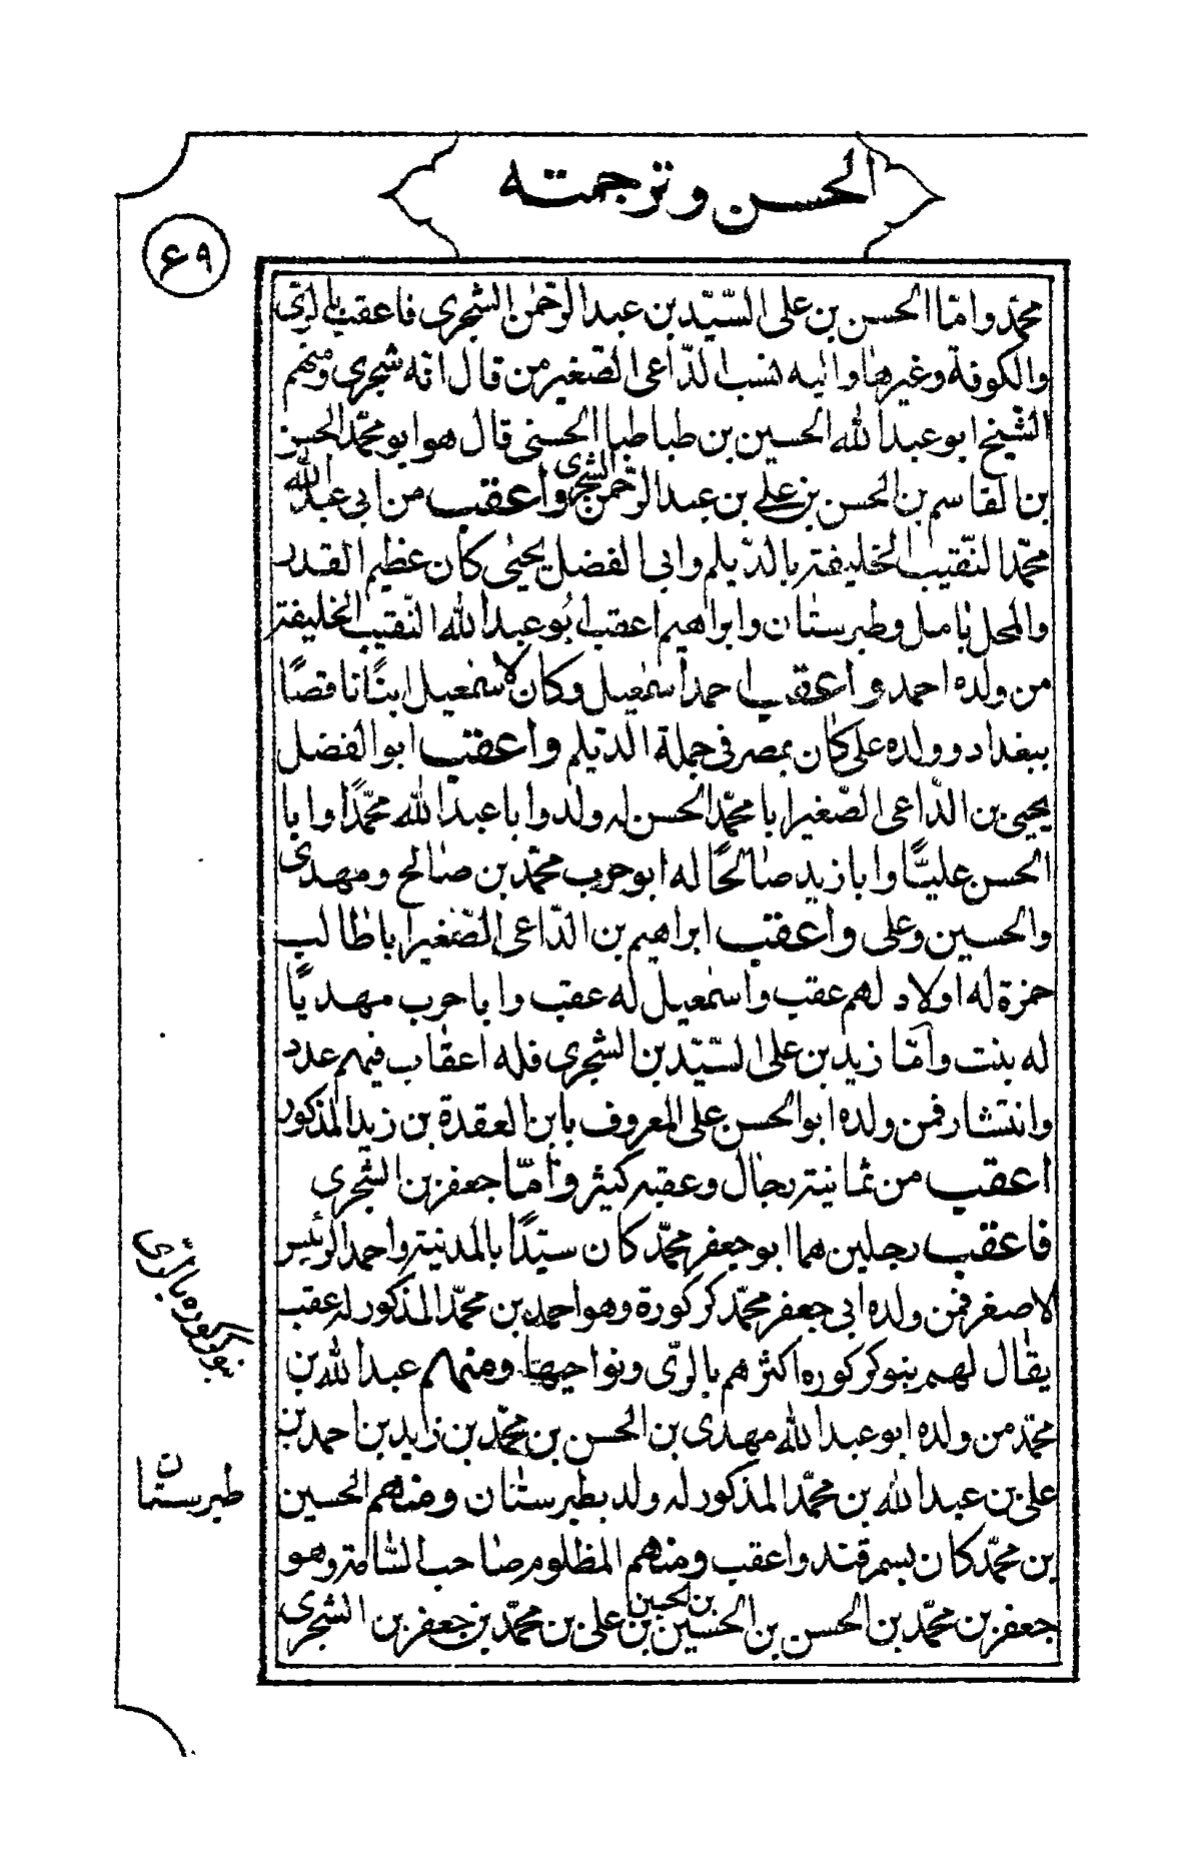 الحسن وترجمته
۶۹
محمّد وامّا الحسن بن على السّيّد بن عبد الرّحمٰن الشجرى فاعقب بالرّى
والكوفة وغيرها واليه نسب الدّاعى الصّغير من قال انّه شجرى ومنهم
الشّيخ ابو عبد الله الحسين بن طباطبا الحسنى قال هو ابو محمّد الحسن
بن القاسم بن الحسن بن على بن عبد الرّحمن الشجرى واعقب من ابى عبد الله
محمّد النّقيب الخليفة بالدّيلم وابى الفضل يحيٰى كان عظيم القدر
والمحل بآمل وطبرستان وابراهيم اعقب ابُو عبد الله النّقيب الخليفة
من ولده احمد واعقب احمد اسمٰعيل وكان لاسمٰعيل ابنًا ناقصًا
ببغداد وولده على كان بمصر فى جملة الدّيلم واعقب ابو الفضل
يحيى بن الدّاعى الصّغير ابا محمّد الحسن له ولد وابا عبد الله محمّدًا وابا
الحسن عليًّا وابا زيد صالحًا له ابو حرب محمّد بن صالح ومهدى
والحسين وعلى واعقب ابراهيم بن الدّاعى الصّغير ابا طالب
حمزة له اولاد لهم عقب واسمٰعيل له عقب وابا حرب مهديًّا
له بنت وامّا زيد بن على السّيّد بن الشجرى فله اعقاب فيهم عدد
وانتشار فمن ولده ابو الحسن على المعروف بابن العقدة بن زيد المذكور
اعقب من ثمانية رجال وعقبه كثير وامّا جعفر بن الشّجرى
فاعقب رجلين هما ابو جعفر محمّد كان سيّدًا بالمدينة واحمد الرئيس
لاصغر فمن ولده ابى جعفر محمّد كركورة وهو احمد بن محمّد المذكور له عقب
يقال لهم بنو كركوره اكثرهم بالرىّ ونواحيها ومنهم عبد الله بن
محمّد من ولده ابو عبد الله مهدى بن الحسن بن محمّد بن زايد بن احمد بن
على بن عبد الله بن محمّد المذكور له ولد بطبرستان ومنهم الحسين
بن محمّد كان بسمرقند واعقب ومنهم المظلوم صاحب الشامة وهو
جعفر بن محمّد بن الحسن بن الحسين بن الحسين بن على بن محمّد بن جعفر بن الشجرى
بنو كركوره بالرّى
طبرستان